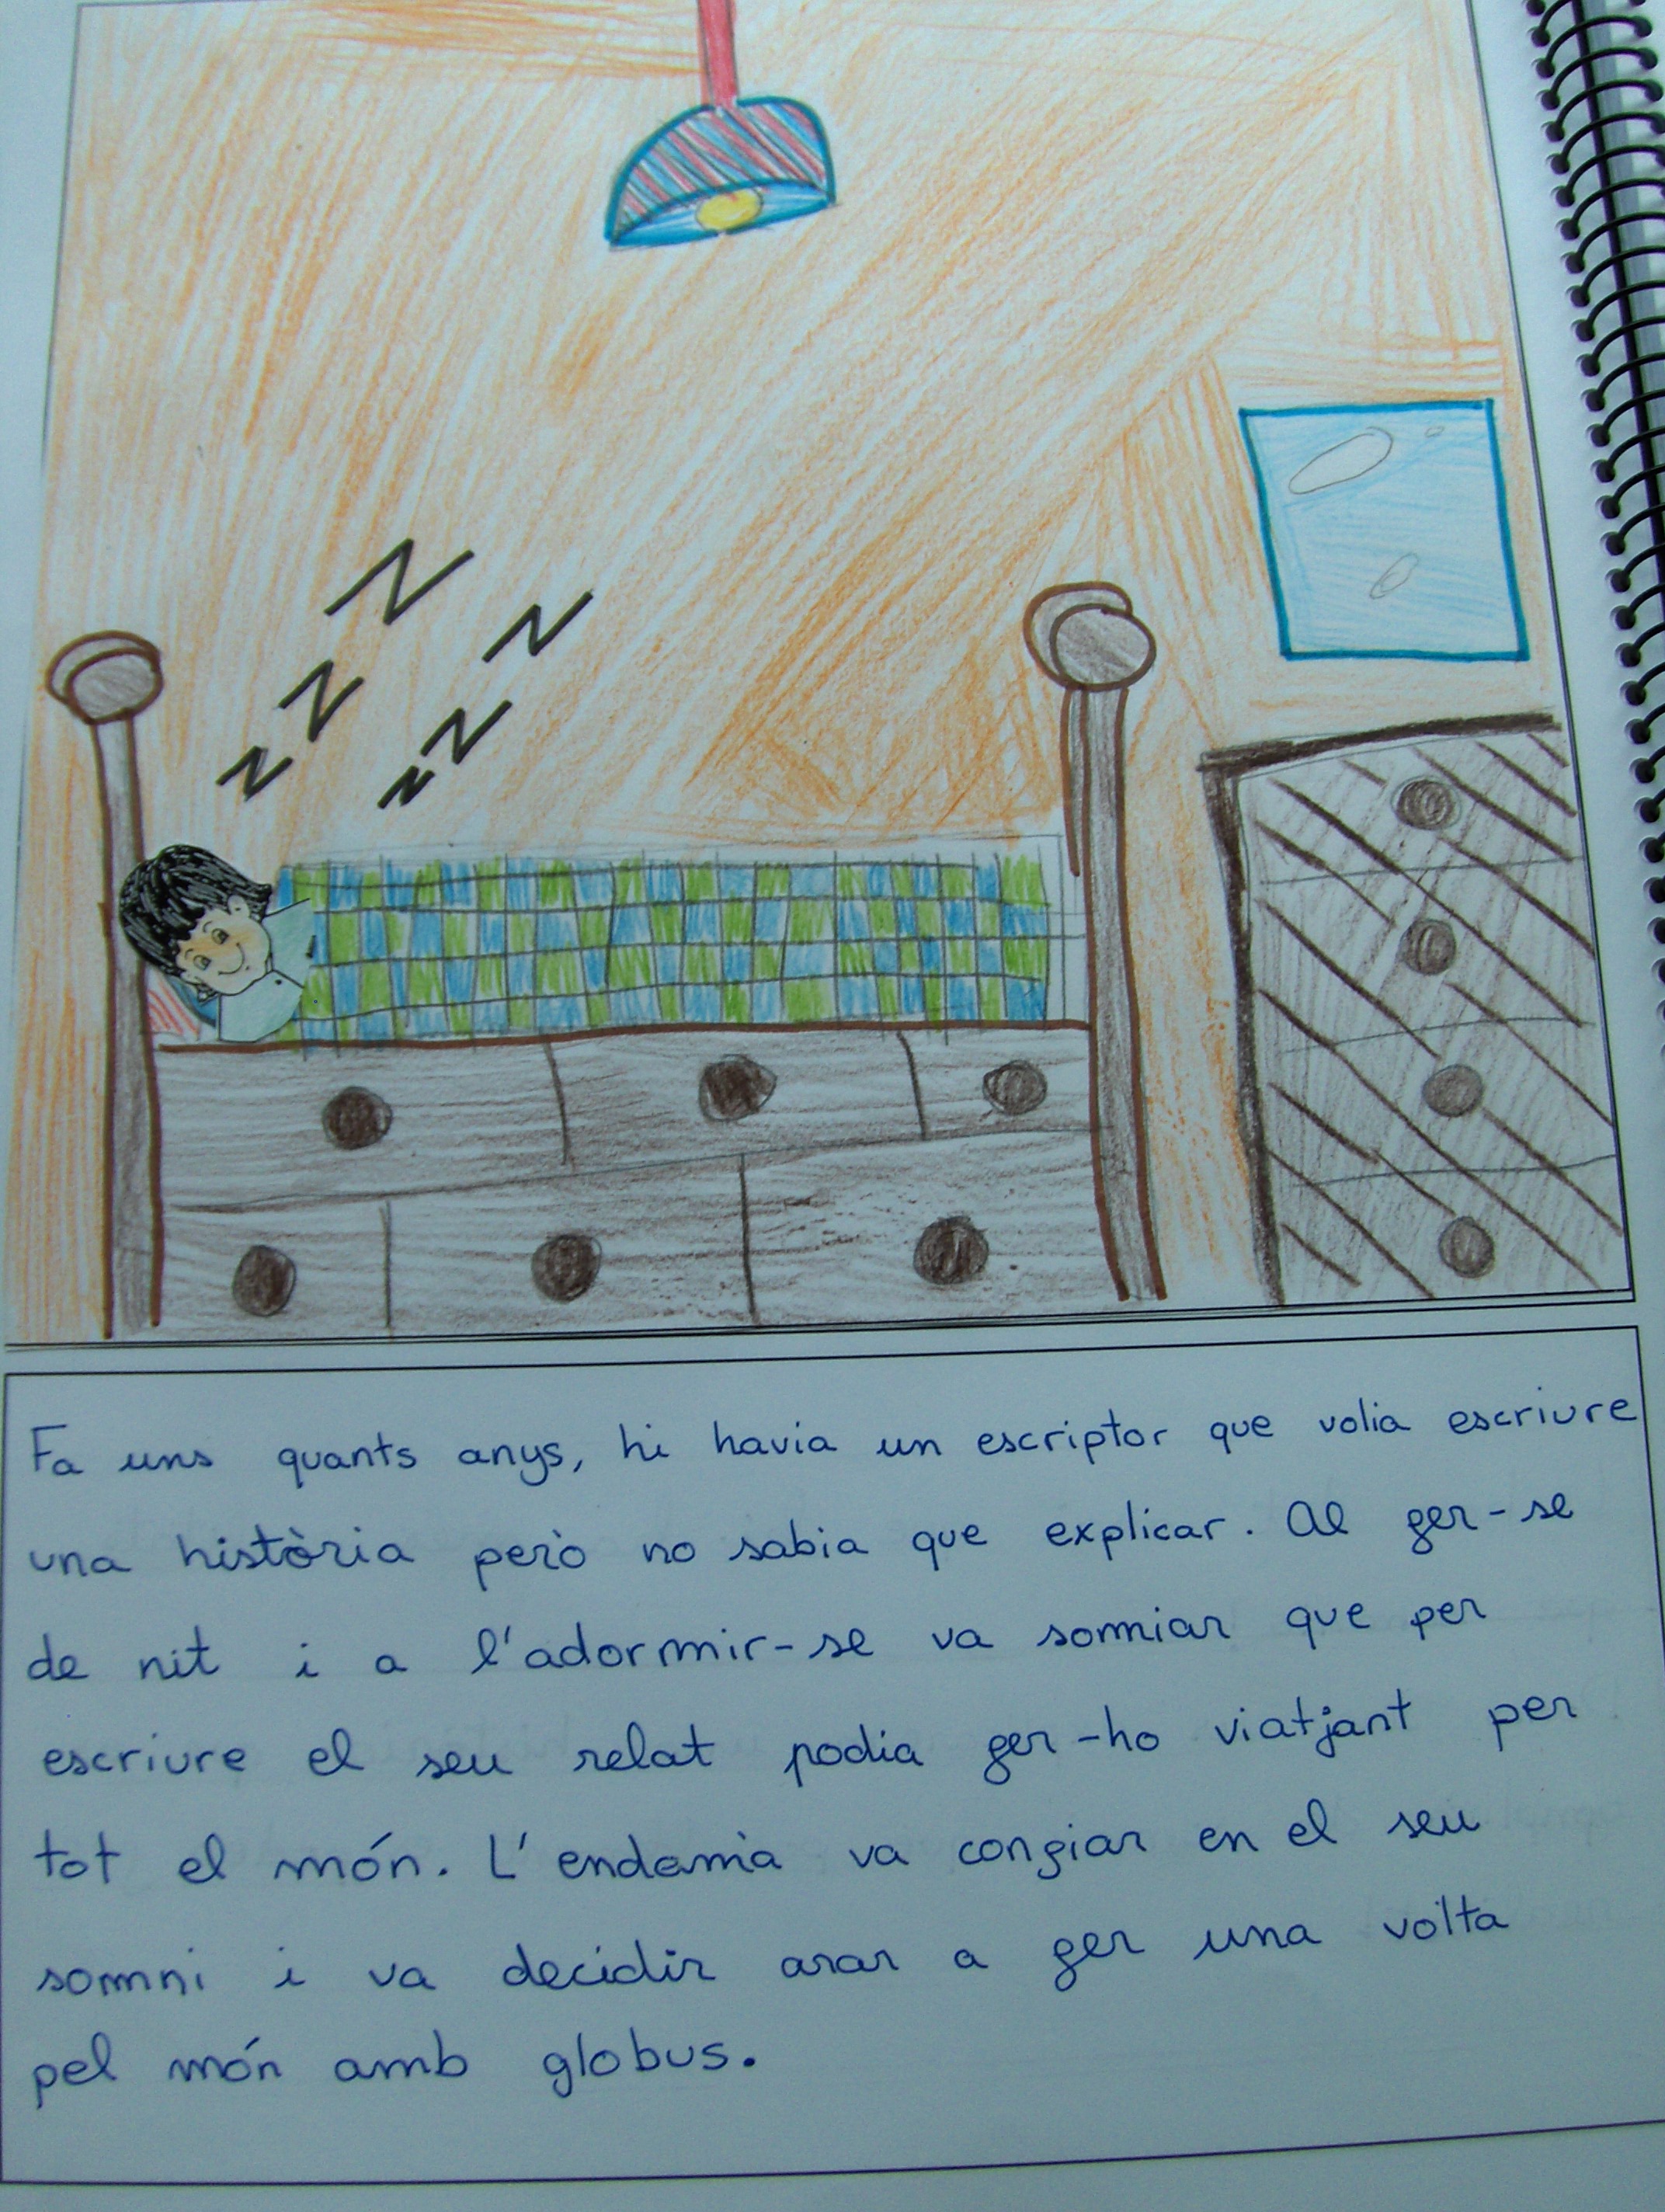 Z Z
Z Z
Z Z
Fa uns quants anys, hi havia un escriptor que volia escriure
una història però no sabia que explicar. Al fer-se
de nit i a l'adormir-se va somniar que per
escriure el seu relat podia fer-ho viatjant per
tot el món. L'endamà va confiar en el seu
somni i va decidir anar a fer una volta
pel món amb globus.